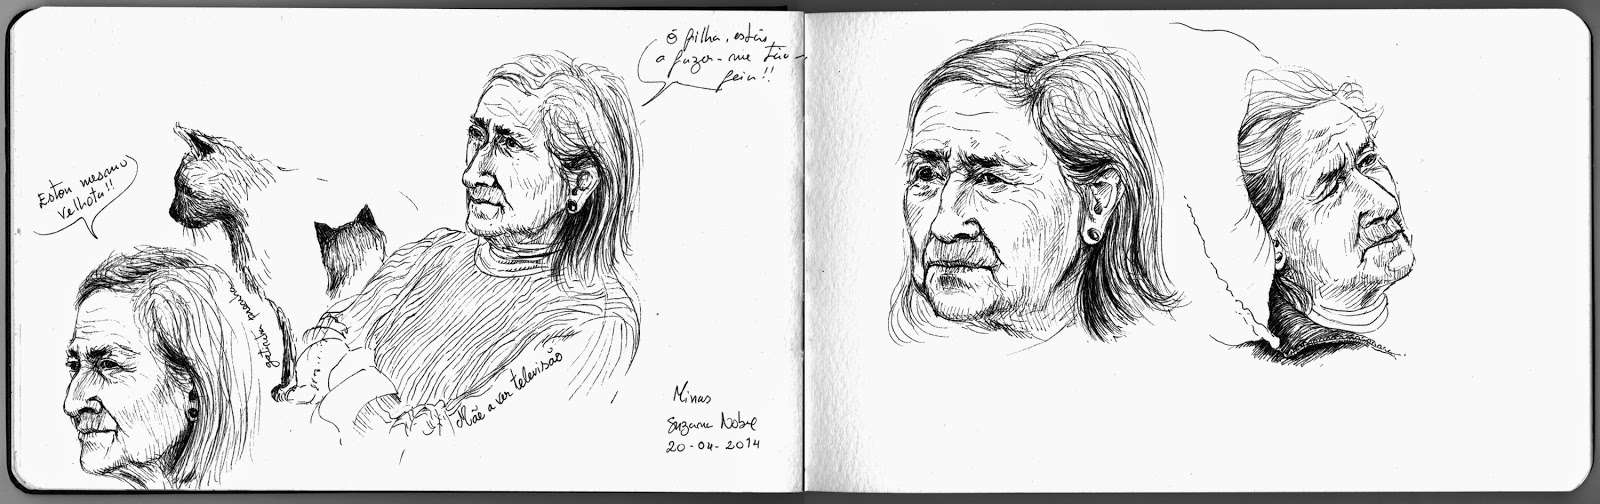 Estou mesmo
velhota!!
ó filha, estás
a fazer-me tão
feia!!
gatinha
Mãe a ver televisão
Minas
Suzana Nobre
20-04-2014